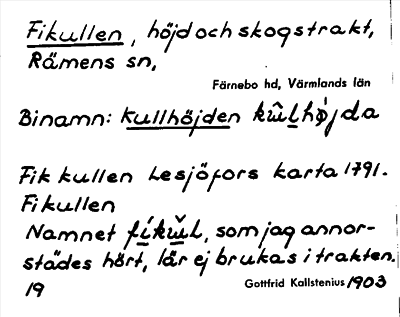 Fikullen, höjd och skogstrakt,
Rämens sn,
Färnebo hd, Värmlands län
Binamn: Kullhöjden kûlhö́jda
Fik kullen Lesjöfors karta 1791.
Fikullen
Namnet fíkŭl, som jag annor-
städes hört, lär ej brukas i trakten.
19 Gottfrid Kallstenius 1903